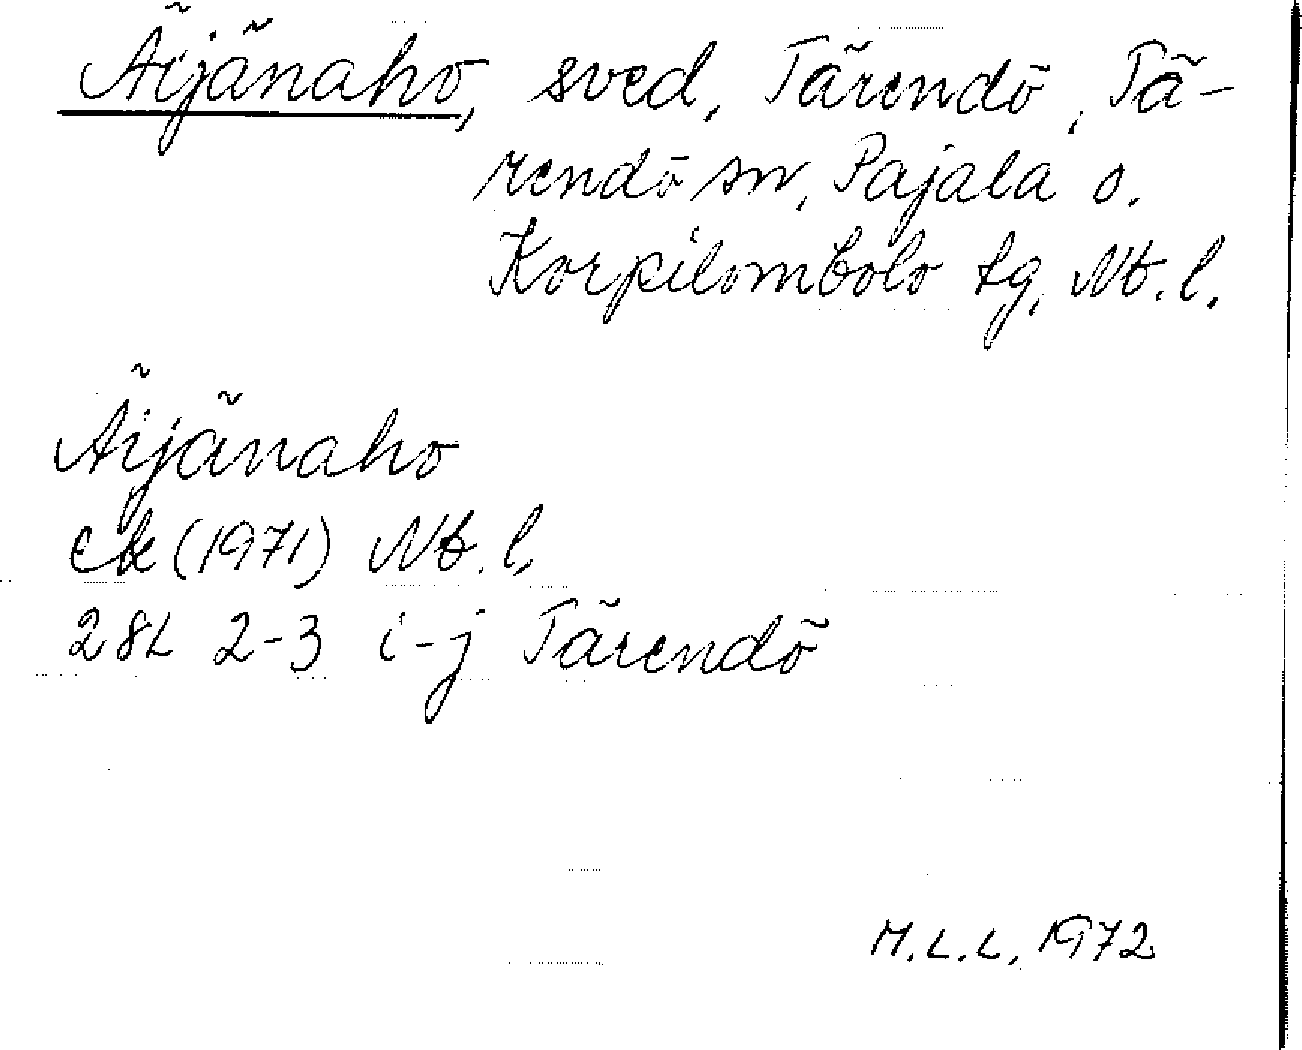 Äijänaho, sved, Tärendö, Tä-
rendö sn, Pajala o.
Korpilombolo tg, Nb. l.
Äijänaho
ek (1971) Nb. l.
28L 2-3 i-j Tärendö
M.L.L. 1972